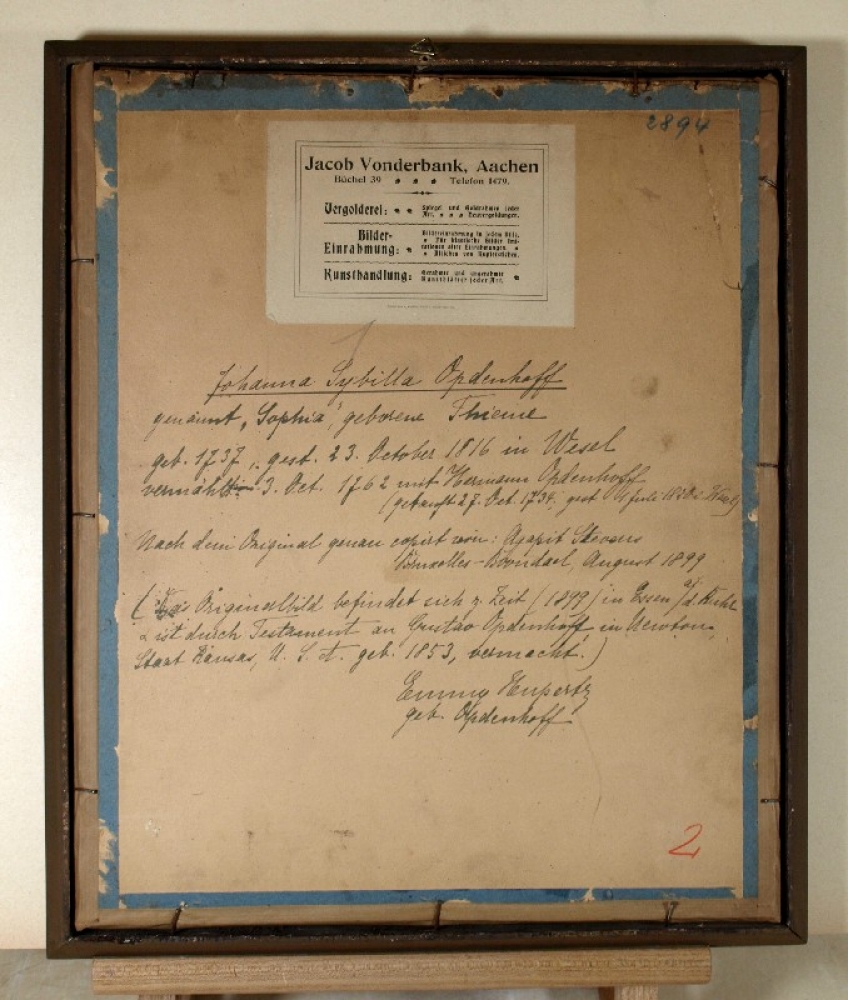 2894
Jacob Vonderbank, Aachen
Büchel 39 Telefon 1479.
Vergolderei: Spiegel und Goldrahmen jeder
Art. Neuvergoldungen.
Bilder- Bildereinrahmung in jedem Stile.
Einrahmung: Für künstliche Bilder
alter Einrahmungen.
Bleichen von Kupferstichen.
Kunsthandlung: Gerahmte und ungerahmte
Kunstblätter jeder Art.
Johanna Sybilla Opdenhoff
genannt „Sophia", geborene Thieme
geb. 1737, gest. 23. October 1816 in Wesel
vermählt 3. Oct. 1762 mit Hermann Opdenhoff
(getauft 27. Oct. 1734, gest Juli Wesel)
Nach dem Original genau copirt von: Agapit Stevens
Bruxelles-Boondael, August 1899
(Das Originalbild befindet sich z. Zeit (1899) in Essen a/d. Ruhr
& ist durch Testament an Gustav Opdenhoff in Newton,
Staat Kansas, U. S. A. geb. 1853, vermacht.)
Emmy Hupertz
geb. Opdenhoff
2